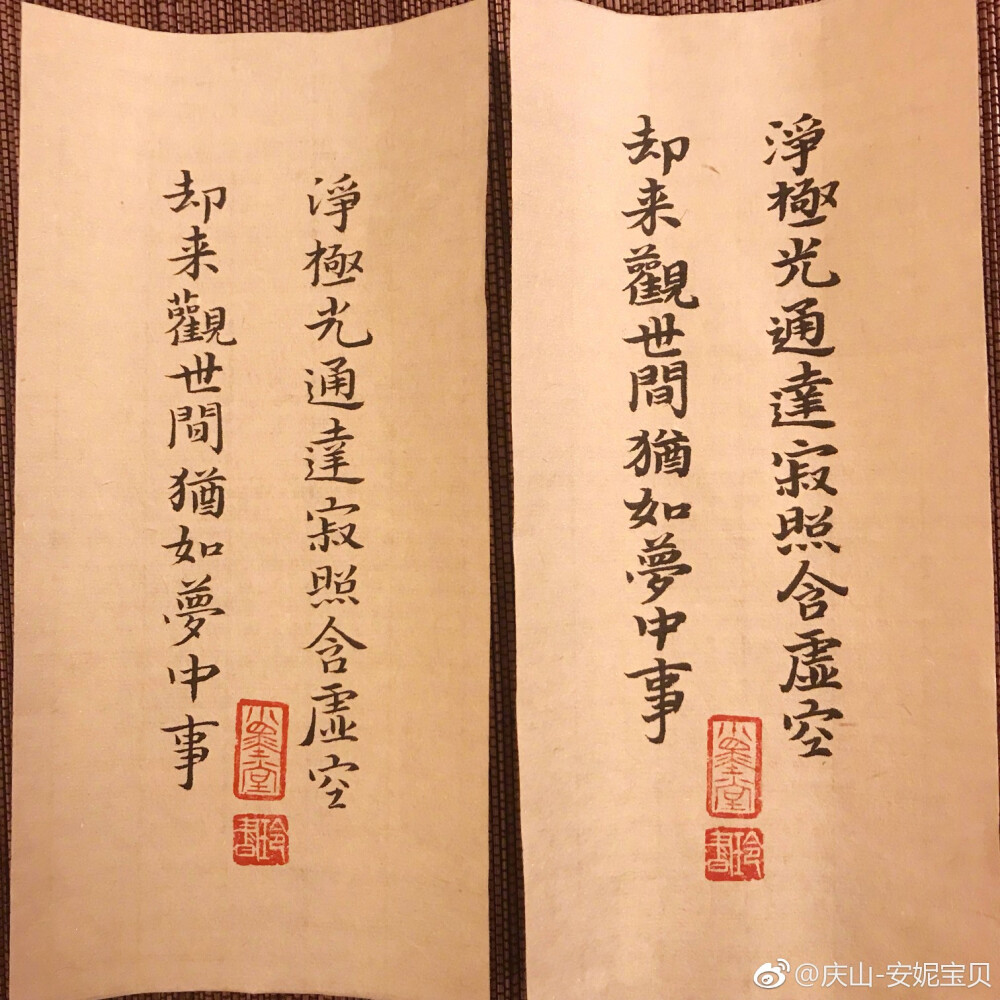 淨極光通達寂照含虛空
却来觀世間猶如夢中事
小墨堂
玲書
淨極光通達寂照含虛空
却来觀世間猶如夢中事
小墨堂
玲書
@庆山-安妮宝贝